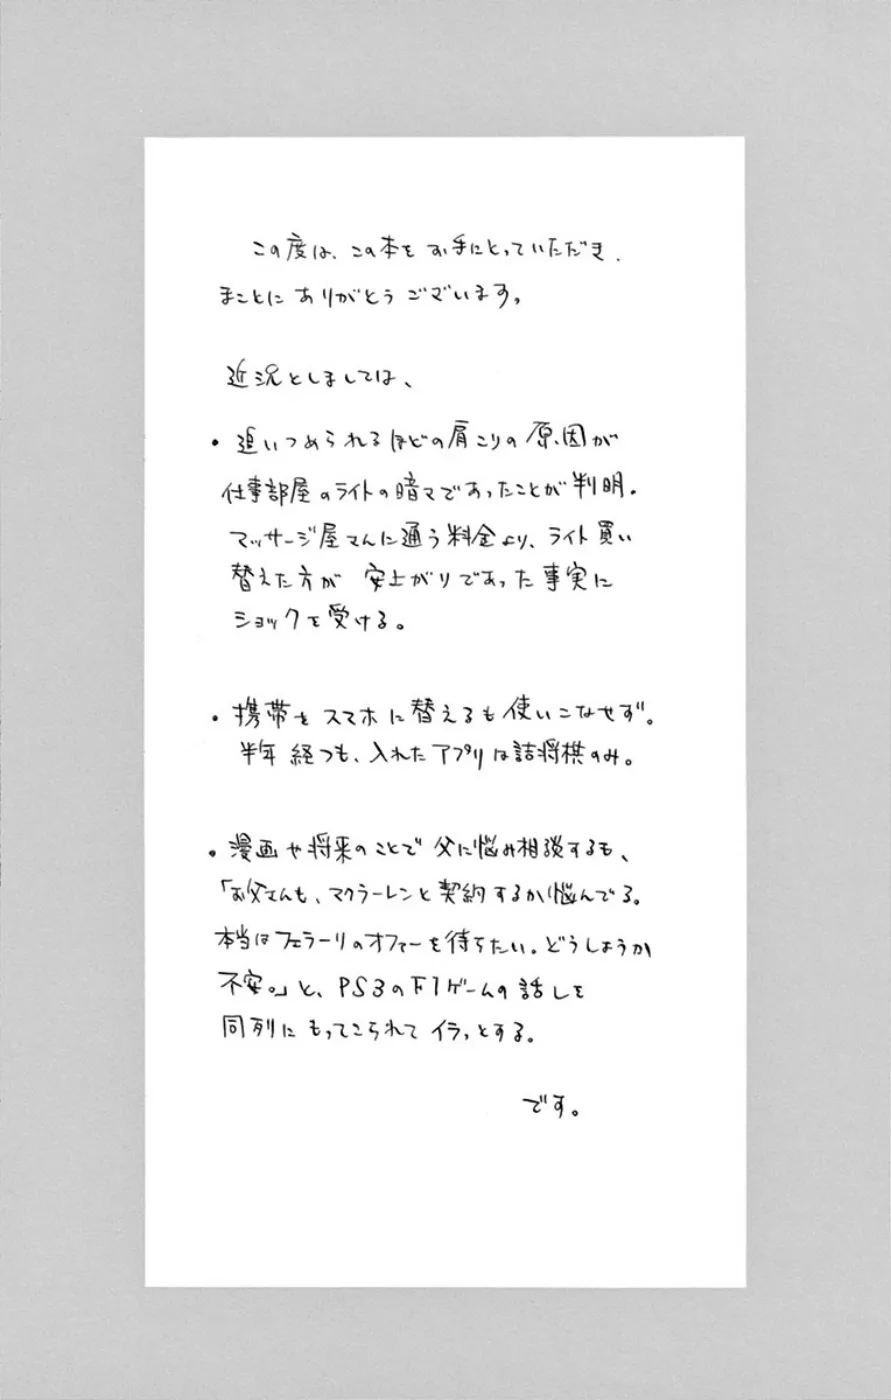 この度は、この本をお手にとっていただき、
まことにありがとうございます。
近況としましては、
・追いつめられるほどの肩こりの原因が
仕事部屋のライトの暗さであったことが判明。
マッサージ屋さんに通う料金より、ライト買い
替えた方が安上がりであった事実に
ショックを受ける。
・携帯をスマホに替えるも使いこなせず。
半年経つも、入れたアプリは詰将棋のみ。
・漫画や将来のことで父に悩み相談するも、
「お父さんも、マクラーレンと契約するか悩んでる。
本当はフェラーリのオファーを待ちたい。どうしようか
不安。」と、PS3のF1ゲームの話しを
同列にもってこられてイラっとする。
です。